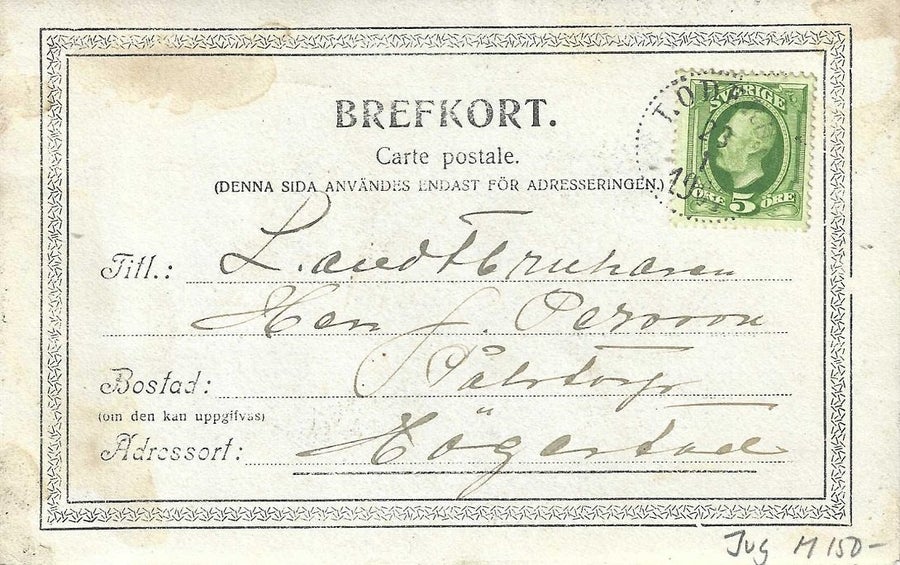 BREFKORT.
Carte postale.
(DENNA SIDA ANVÄNDES ENDAST FÖR ADRESSERINGEN.)
SVERIGE
5 ÖRE
23
1
Till.: Landtbrukaren
Herr J. Persson
Bostad: Påhrtorp
(om den kan uppgifvas)
Adressort: Högestad
Jug M 150-